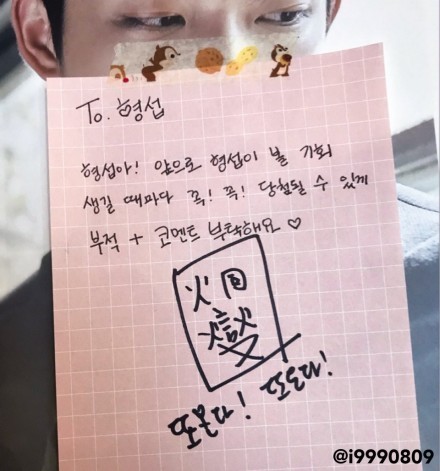 To. 형섭
형섭아! 앞으로 형섭이 볼 기회
생길 때마다 꼭! 꼭! 당첨될 수 있게
부적 + 코멘트 부탁해요 ♡
또온다! 또온다!
@i9990809